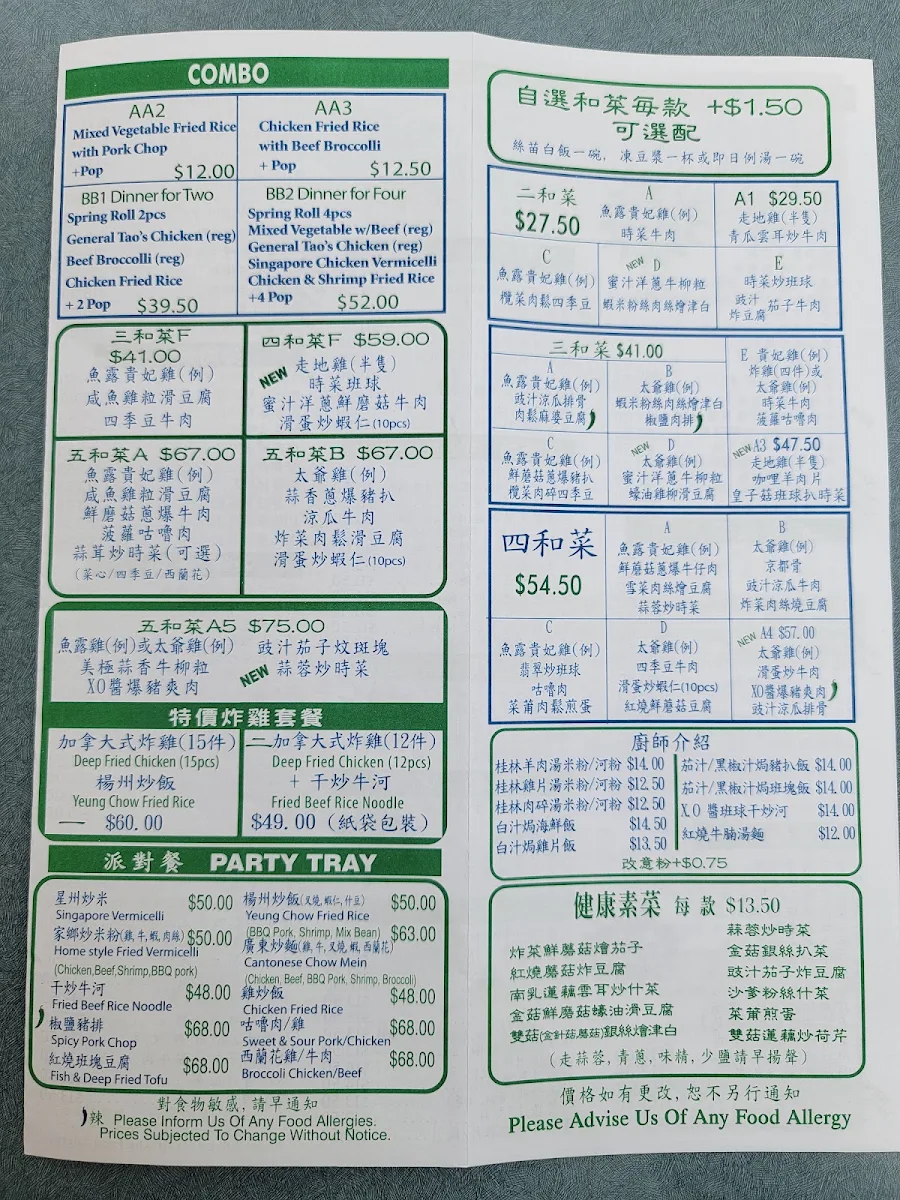 COMBO
AA2
Mixed Vegetable Fried Rice
with Pork Chop
+Pop $12.00
AA3
Chicken Fried Rice
with Beef Broccolli
+ Pop $12.50
BB1 Dinner for Two
Spring Roll 2pcs
General Tao's Chicken (reg)
Beef Broccoli (reg)
Chicken Fried Rice
+ 2 Pop $39.50
BB2 Dinner for Four
Spring Roll 4pcs
Mixed Vegetable w/Beef (reg)
General Tao's Chicken (reg)
Singapore Chicken Vermicelli
Chicken & Shrimp Fried Rice
+4 Pop $52.00
三和菜F
$41.00
魚露貴妃雞(例)
咸魚雞粒滑豆腐
四季豆牛肉
四和菜F $59.00
NEW 走地雞(半隻)
時菜班球
蜜汁洋蔥鮮磨菇牛肉
滑蛋炒蝦仁(10pcs)
五和菜A $67.00
魚露貴妃雞(例)
咸魚雞粒滑豆腐
鮮磨菇蔥爆牛肉
菠蘿咕嚕肉
蒜茸炒時菜(可選)
(菜心/四季豆/西蘭花)
五和菜B $67.00
太爺雞(例)
蒜香蔥爆豬扒
涼瓜牛肉
炸菜肉鬆滑豆腐
滑蛋炒蝦仁(10pcs)
五和菜A5 $75.00
魚露雞(例)或太爺雞(例)
美極蒜香牛柳粒
XO醬爆豬爽肉
豉汁茄子炆班塊
NEW 蒜蓉炒時菜
特價炸雞套餐
加拿大式炸雞(15件)
Deep Fried Chicken (15pcs)
楊州炒飯
Yeung Chow Fried Rice
$60.00
加拿大式炸雞(12件)
Deep Fried Chicken (12pcs)
+ 干炒牛河
Fried Beef Rice Noodle
$49.00 (紙袋包裝)
派對餐 PARTY TRAY
星州炒米 $50.00
Singapore Vermicelli
家鄉炒米粉(雞,牛,蝦,肉絲) $50.00
Home style Fried Vermicelli
(Chicken,Beef,Shrimp,BBQ pork)
干炒牛河 $48.00
Fried Beef Rice Noodle
椒鹽豬排 $68.00
Spicy Pork Chop
紅燒班塊豆腐 $68.00
Fish & Deep Fried Tofu
楊州炒飯(叉燒,蝦仁,什豆) $50.00
Yeung Chow Fried Rice
(BBQ Pork, Shrimp, Mix Bean)
廣東炒麵(雞,牛,叉燒,蝦,西蘭花) $63.00
Cantonese Chow Mein
(Chicken, Beef, BBQ Pork, Shrimp, Broccoli)
雞炒飯 $48.00
Chicken Fried Rice
咕嚕肉/雞 $68.00
Sweet & Sour Pork/Chicken
西蘭花雞/牛肉 $68.00
Broccoli Chicken/Beef
對食物敏感,請早通知
辣 Please Inform Us Of Any Food Allergies.
Prices Subjected To Change Without Notice.
自選和菜每款 +$1.50
可選配
絲苗白飯一碗, 凍豆漿一杯或即日例湯一碗
二和菜
$27.50
A
魚露貴妃雞(例)
時菜牛肉
A1 $29.50
走地雞(半隻)
青瓜雲耳炒牛肉
C
魚露貴妃雞(例)
欖菜肉鬆四季豆
NEW D
蜜汁洋蔥牛柳粒
蝦米粉絲肉絲燴津白
E
時菜炒班球
豉汁炸豆腐茄子牛肉
三和菜 $41.00
A
魚露貴妃雞(例)
豉汁涼瓜排骨
肉鬆麻婆豆腐
B
太爺雞(例)
蝦米粉絲肉絲燴津白
椒鹽肉排
E 貴妃雞(例)
炸雞(四件)或
太爺雞(例)
時菜牛肉
菠蘿咕嚕肉
C
魚露貴妃雞(例)
鮮蘑菇蔥爆豬扒
欖菜肉碎四季豆
NEW D
太爺雞(例)
蜜汁洋蔥牛柳粒
蠔油雞柳滑豆腐
NEW A3 $47.50
走地雞(半隻)
咖哩羊肉片
皇子菇班球扒時菜
四和菜
$54.50
A
魚露貴妃雞(例)
鮮蘑菇蔥爆牛仔肉
雪菜肉絲燴豆腐
蒜蓉炒時菜
B
太爺雞(例)
京都骨
豉汁涼瓜牛肉
炸菜肉絲燒豆腐
C
魚露貴妃雞(例)
翡翠炒班球
咕嚕肉
菜甫肉鬆煎蛋
D
太爺雞(例)
四季豆牛肉
滑蛋炒蝦仁(10pcs)
紅燒鮮蘑菇豆腐
NEW A4 $57.00
太爺雞(例)
滑蛋炒牛肉
XO醬爆豬爽肉
豉汁涼瓜排骨
廚師介紹
桂林羊肉湯米粉/河粉 $14.00
桂林雞片湯米粉/河粉 $12.50
桂林肉碎湯米粉/河粉 $12.50
白汁焗海鮮飯 $14.50
白汁焗雞片飯 $13.50
茄汁/黑椒汁焗豬扒飯 $14.00
茄汁/黑椒汁焗班塊飯 $14.00
XO 醬班球干炒河 $14.00
紅燒牛腩湯麵 $12.00
改意粉+$0.75
健康素菜 每款 $13.50
炸菜鮮蘑菇燴茄子
紅燒蘑菇炸豆腐
南乳蓮藕雲耳炒什菜
金菇鮮蘑菇蠔油滑豆腐
雙菇(金針菇,蘑菇)銀絲燴津白
蒜蓉炒時菜
金菇銀絲扒菜
豉汁茄子炸豆腐
沙爹粉絲什菜
菜莆煎蛋
雙菇蓮藕炒荷芹
(走蒜蓉,青蔥,味精,少鹽請早揚聲)
價格如有更改,恕不另行通知
Please Advise Us Of Any Food Allergy